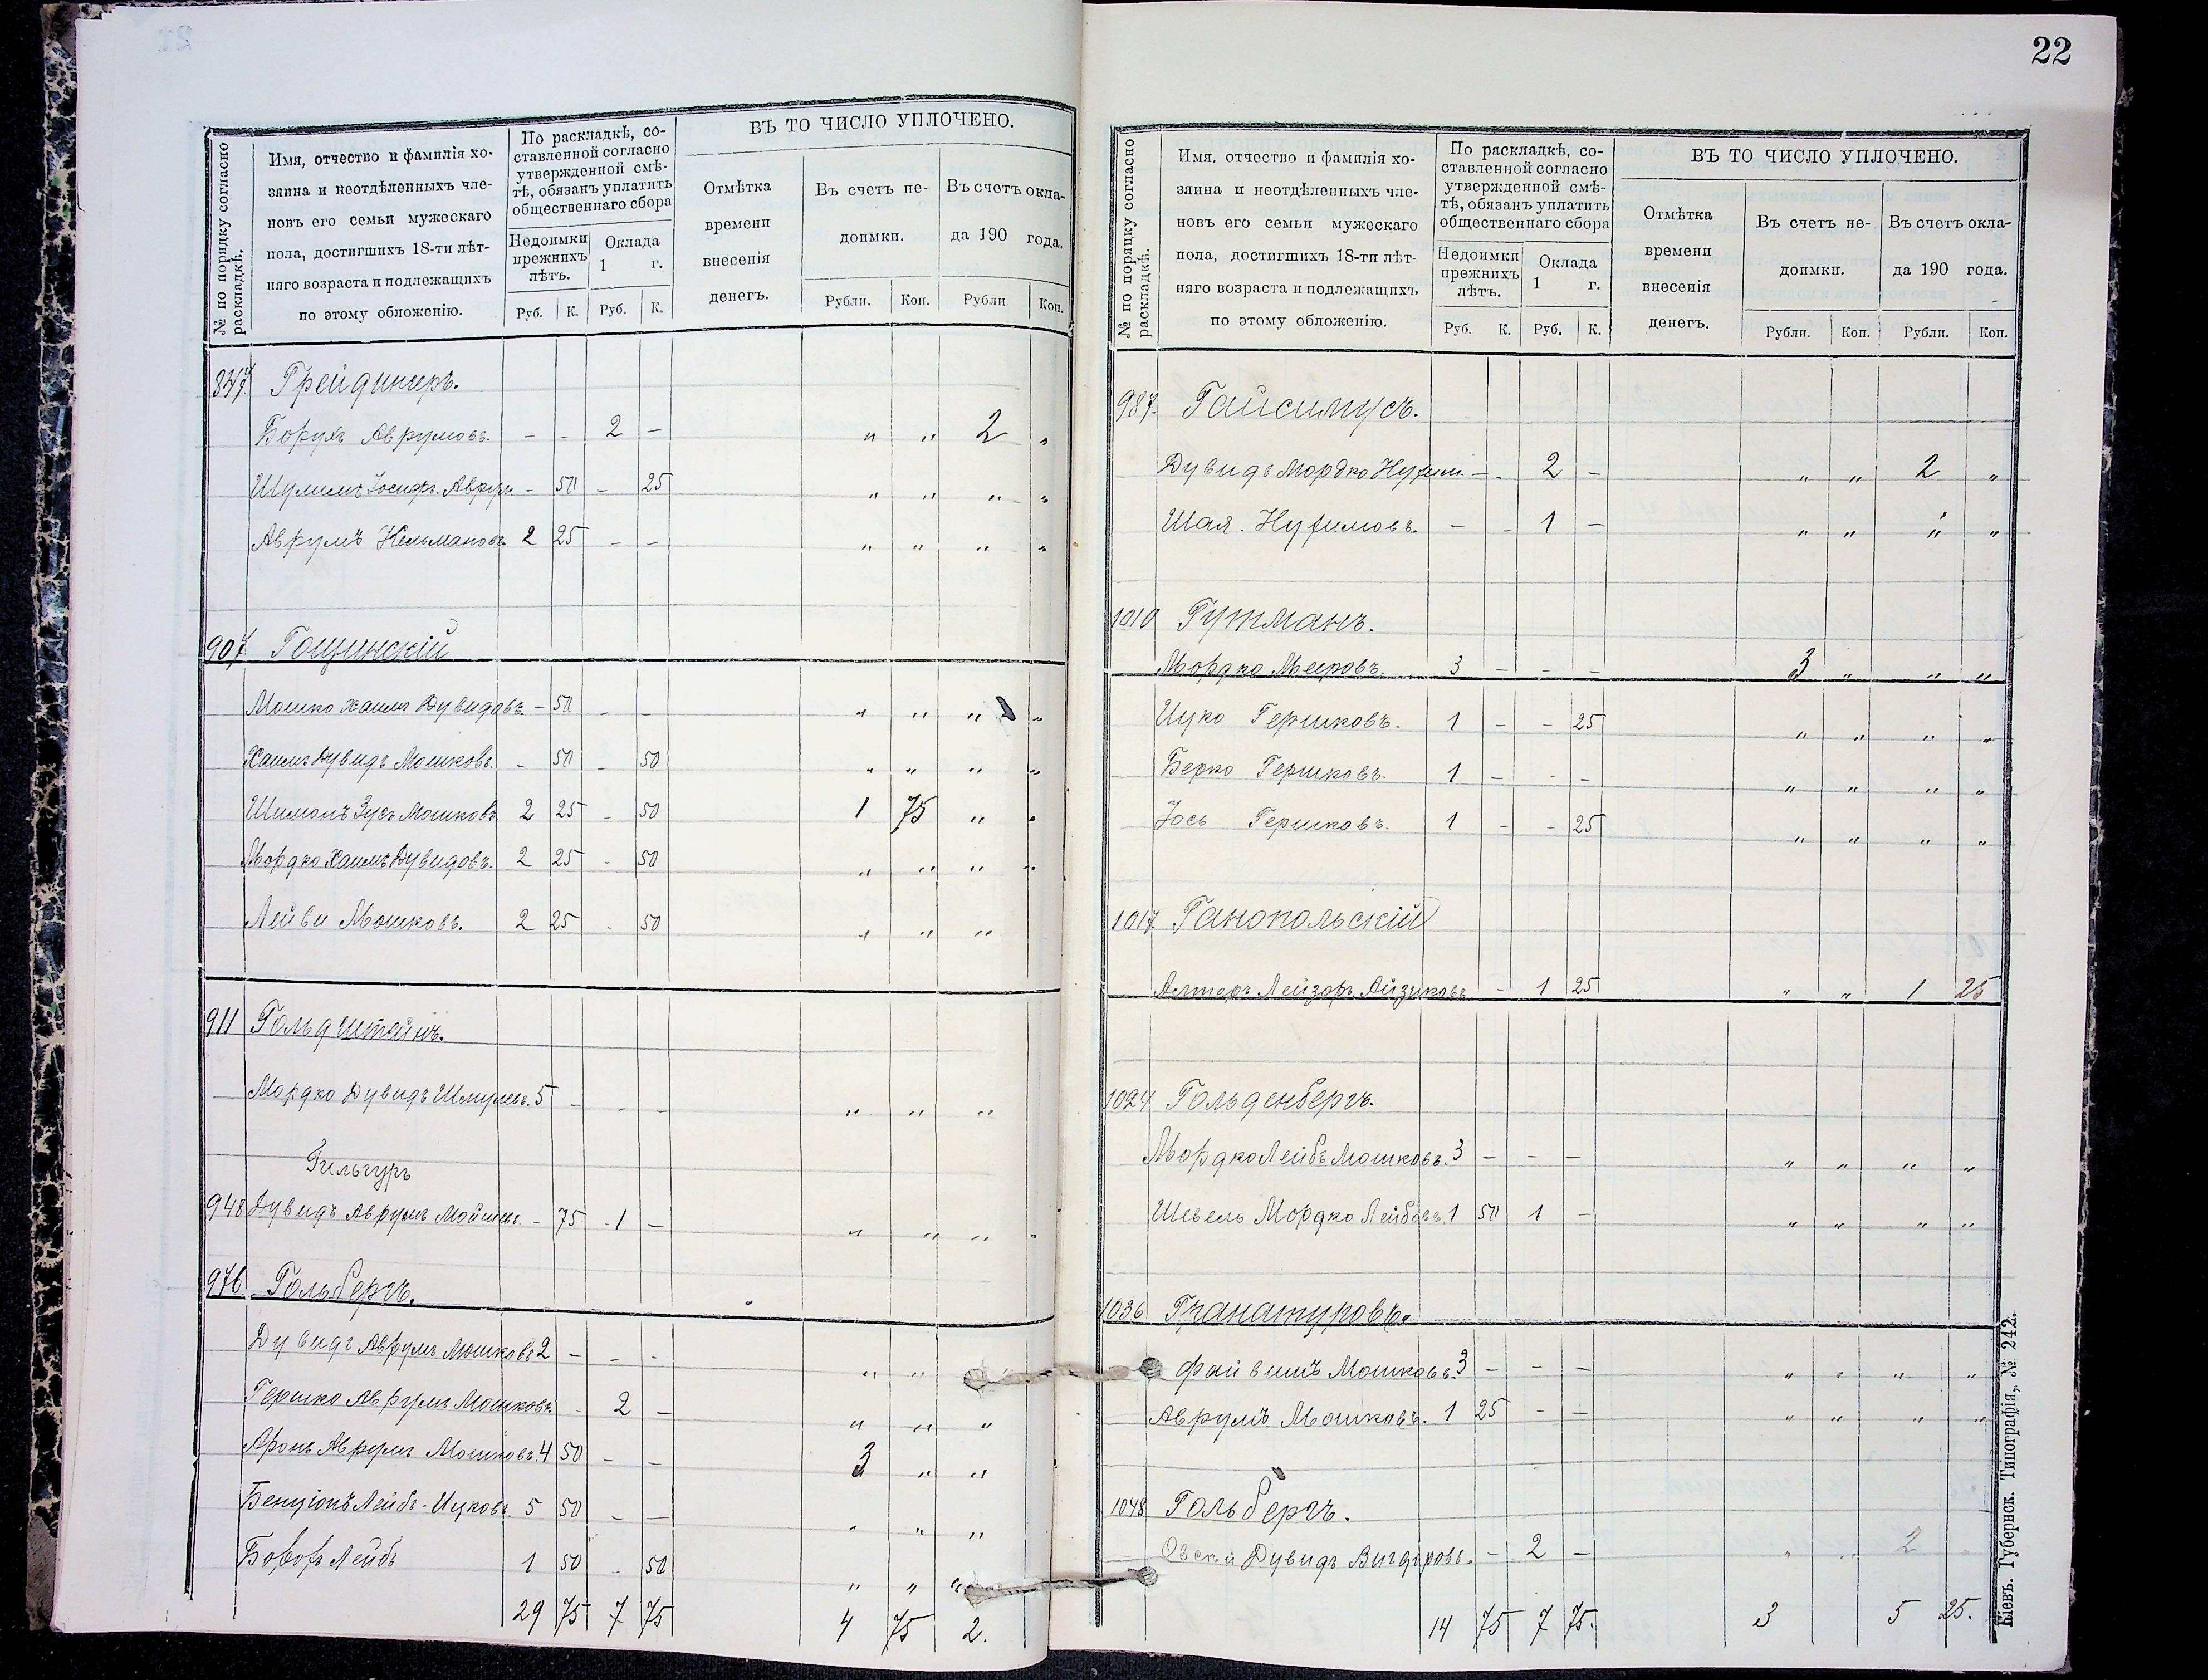 22
№ по порядку согласно раскладкѣ.
Имя, отчество и фамилія хо-
зяина и неотдѣленныхъ чле-
новъ его семьи мужескаго
пола, достигшихъ 18-ти лѣт-
няго возраста и подлежащихъ
по этому обложенію.
По раскладкѣ, со-
ставленной согласно
утвержденной смѣ-
тѣ, обязанъ уплатить
общественнаго сбора
Недоимки
прежнихъ
лѣтъ.
Оклада
1 г.
Руб. К. Руб. К.
ВЪ ТО ЧИСЛО УПЛОЧЕНО.
Отмѣтка
времени
внесенія
денегъ.
Въ счетъ не-
доимки.
Въ счетъ окла-
да 190 года.
Рубли. Коп. Рубли Коп.
847. Грейдингеръ.
Борухъ Аврумовъ. - - 2 - " " 2 "
Шулимъ Іосифъ Аврум - 50 - 25 " " " "
Аврумъ Кельмановъ 2 25 - - " " " "
907 Гощинскій
Мошко Хаимъ Дувидовъ. - 50 - - " " " "
Хаимъ Дувидъ Мошковъ. - 50 - 50 " " " "
Шимонъ Зусъ Мошковъ 2 25 - 50 1 75 " "
Мордко Хаимъ Дувидовъ. 2 25 - 50 " " " "
Лейви Мошковъ. 2 25 - 50 " " "
911 Гольдштейнъ.
Мордко Дувидъ Шмулевъ. 5 - - - " " "
948 Дувидъ Аврумъ Мойшев. - 75 - 1 - " " " "
976 Гольбергъ.
Дувидъ Аврумъ Мошковъ 2 - - - " "
Гершко Аврумъ Мошковъ. - 2 - " " "
Аронъ Аврумъ Мошковъ. 4 50 - - 3 " "
Бенціонъ Лейбъ-Ицковъ. 5 50 - - " " "
Лейбъ 1 50 - 50 " " "
29 75 7 75 4 75 2.
№ по порядку согласно раскладкѣ.
Имя, отчество и фамилія хо-
зяина и неотдѣленныхъ чле-
новъ его семьи мужескаго
пола, достигшихъ 18-ти лѣт-
няго возраста и подлежащихъ
по этому обложенію.
По раскладкѣ, со-
ставленной согласно
утвержденной смѣ-
тѣ, обязанъ уплатить
общественнаго сбора
Недоимки
прежнихъ
лѣтъ.
Оклада
1 г.
Руб. К. Руб. К.
ВЪ ТО ЧИСЛО УПЛОЧЕНО.
Отмѣтка
времени
внесенія
денегъ.
Въ счетъ не-
доимки.
Въ счетъ окла-
да 190 года.
Рубли. Коп. Рубли. Коп.
987. Гайсинусъ.
Дувидъ Мордко Нухим. - - 2 - " " 2 "
Шая Нухимовъ. - - 1 - " " " "
1010 Гутманъ.
Мордко Мееровъ. 3 - - - 3 " " "
Ицко Гершковъ. 1 - - 25 " " " "
Берко Гершковъ. 1 - - - " " " "
Іось Гершковъ. 1 - - 25 " " " "
1017 Ганопольскій
Алтеръ Лейзоръ Айзиковъ - 1 25 " " 1 25
1024 Гольденбергъ.
Мордко Лейбъ Мошковъ. 3 - - - " " " "
Шевель Мордко Лейбовъ. 1 50 1 - " " " "
1036
Файвишъ Мошковъ. 3 - - - " " " "
Аврумъ Мошковъ. 1 25 - - " " " "
1048 Гольбергъ.
Овсій Дувидъ Вигдоровъ. - 2 - " " 2
14 75 7 75. 3 5 25.
Кіевъ. Губернск. Типографія, № 242.